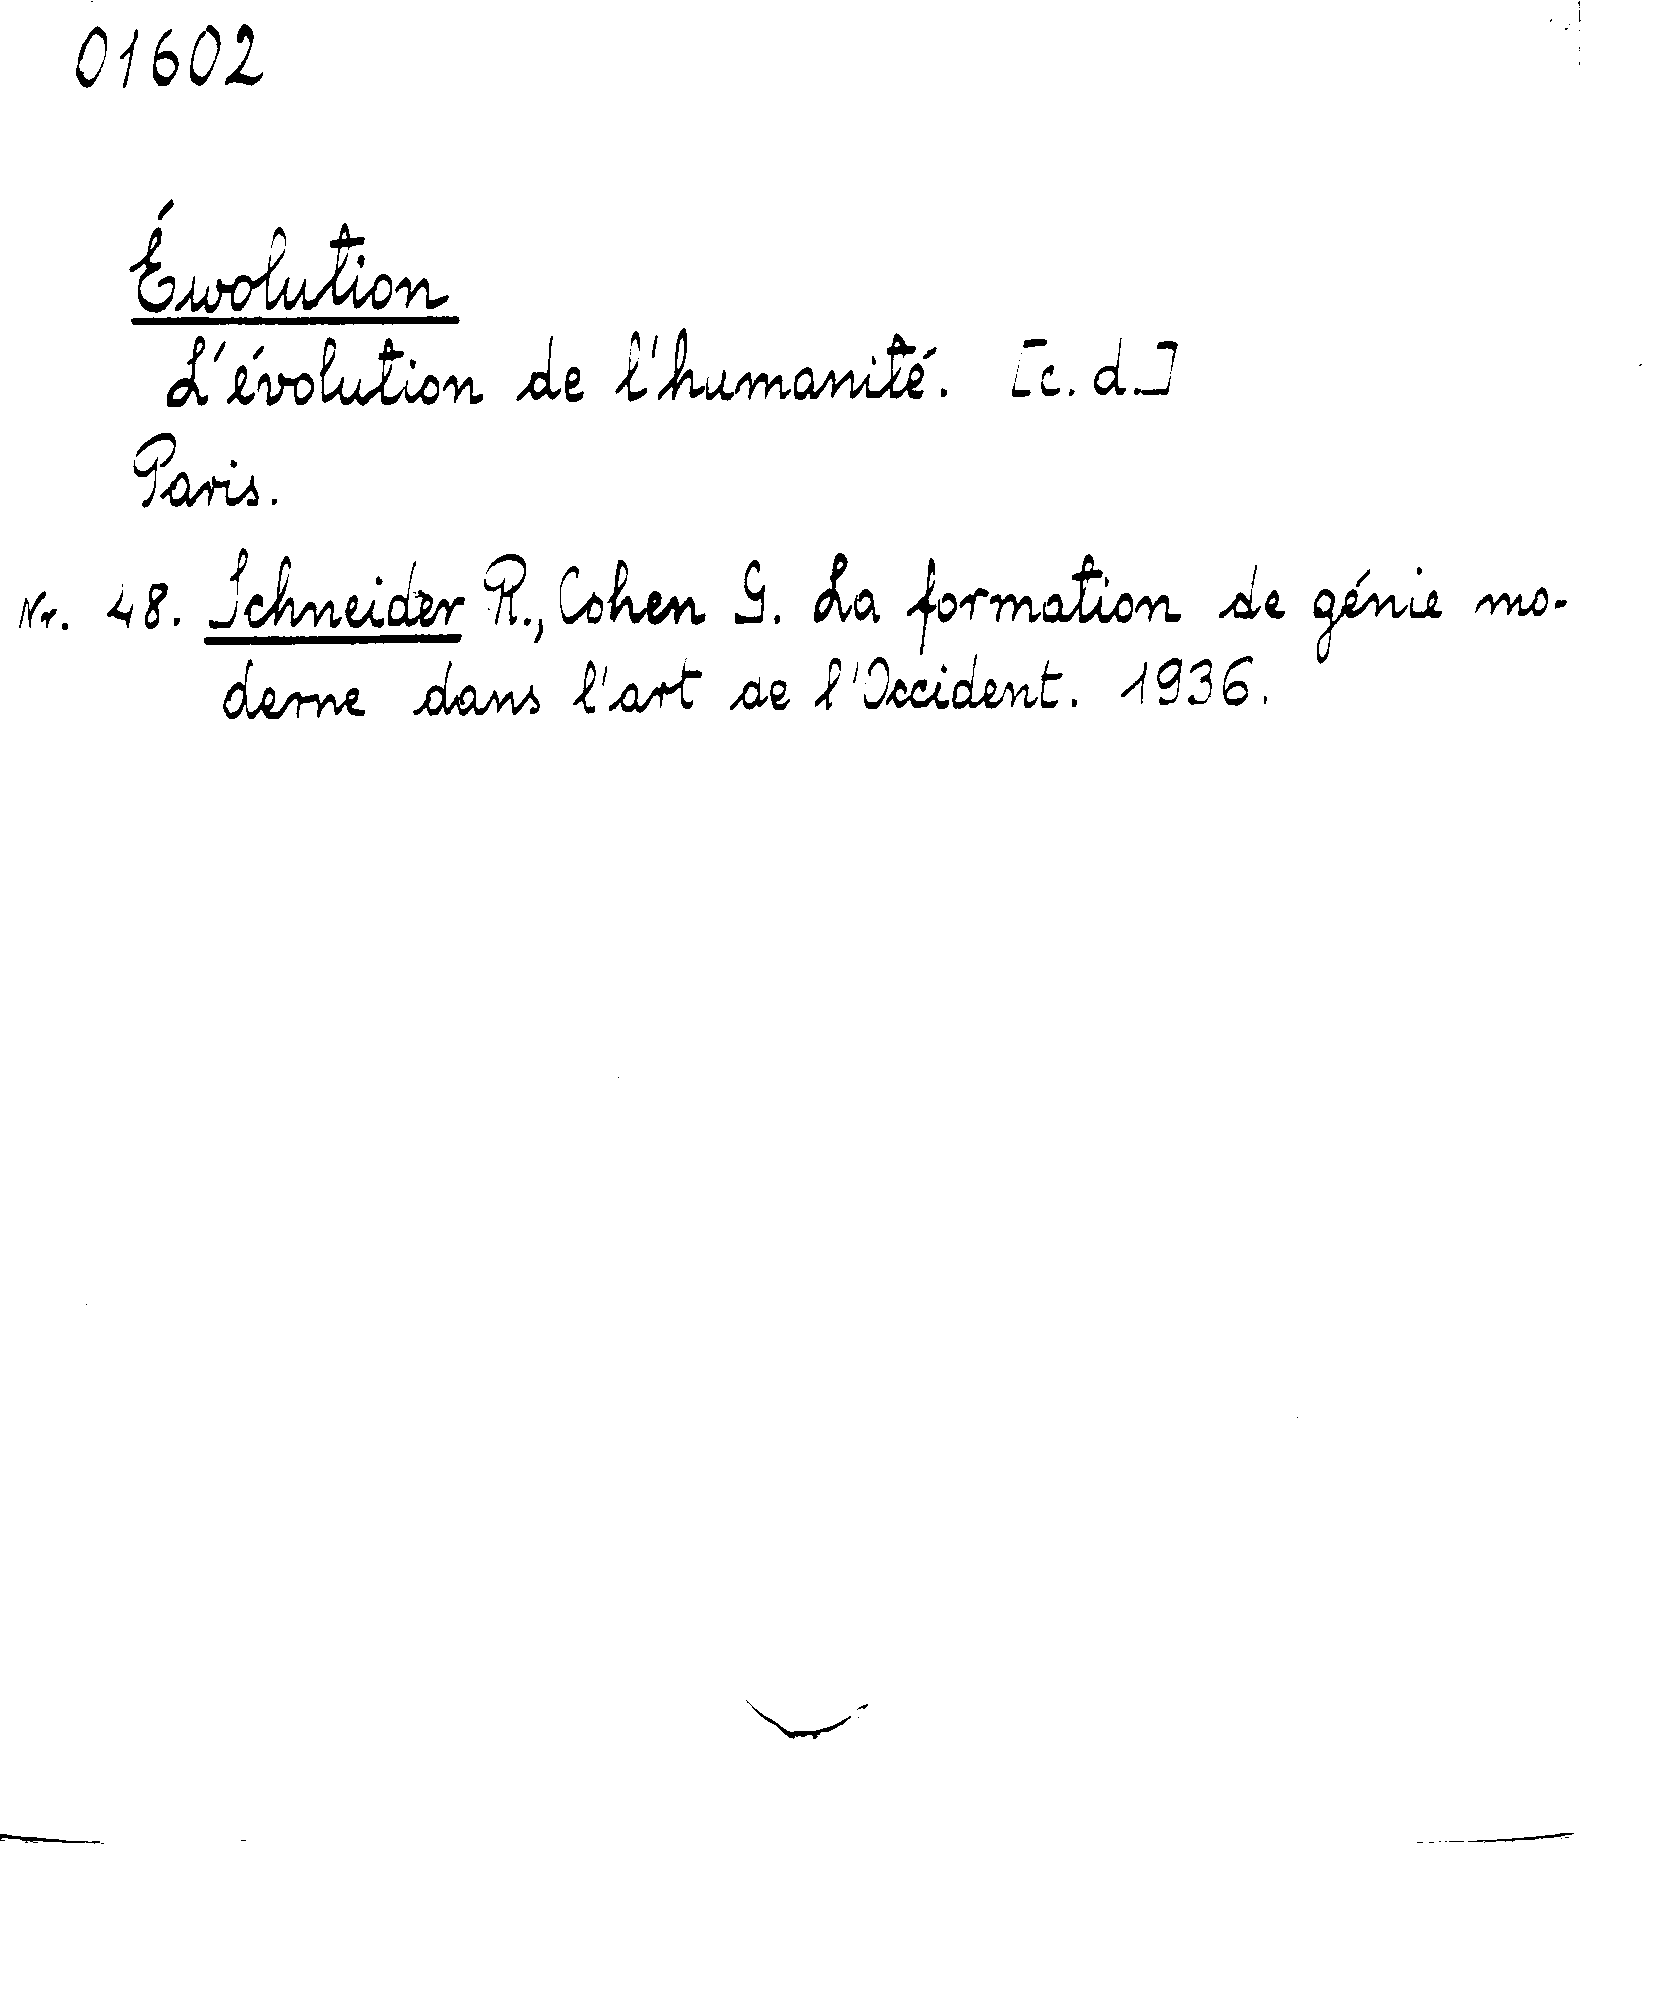 01602
Éwolution
L'évolution de l'humanité. [c. d.]
Paris.
Nr. 48. Schneider R., Cohen G. La formation de génie mo-
derne dans l'art de l'Occident. 1936.